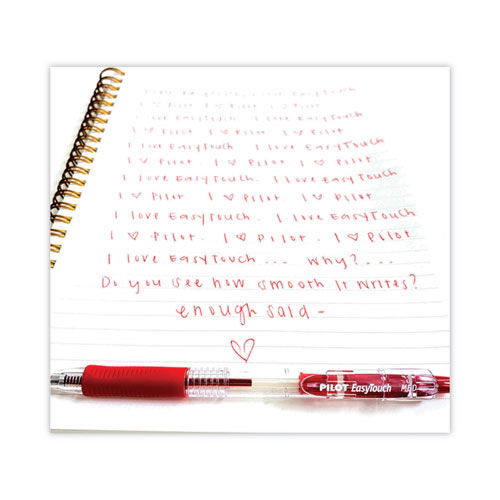 I love EasyTouch. I love EasyTouch
I ♡ Pilot. I ♡ Pilot. I ♡ Pilot
I love EasyTouch. I love EasyTouch
I ♡ Pilot. I ♡ Pilot. I ♡ Pilot
I love EasyTouch. I love EasyTouch
I ♡ Pilot. I ♡ Pilot. I ♡ Pilot
I love EasyTouch. I love EasyTouch
I ♡ Pilot. I ♡ Pilot. I ♡ Pilot
I love EasyTouch. I love EasyTouch.
I ♡ Pilot. I ♡ Pilot. I ♡ Pilot
I love EasyTouch... Why?...
Do you see how smooth it writes?
enough said -
♡
PILOT EasyTouch MED